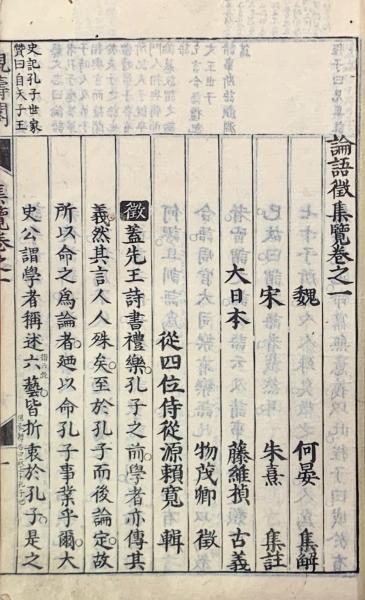 論語徵集覽卷之一
魏 何晏 集解
宋 朱熹 集註
大日本 藤維楨 古義
物茂卿 徵
從四位侍從源賴寬 輯
徵蓋先王詩書禮樂孔子之前學者亦傳其
義然其言人人殊矣至於孔子而後論定故
所以命之為論者廼以命孔子事業乎爾大
史公謂學者稱述六藝皆折衷於孔子是之
史記孔子世家
贊曰自天子王
觀濤閣
集覽卷之一
一